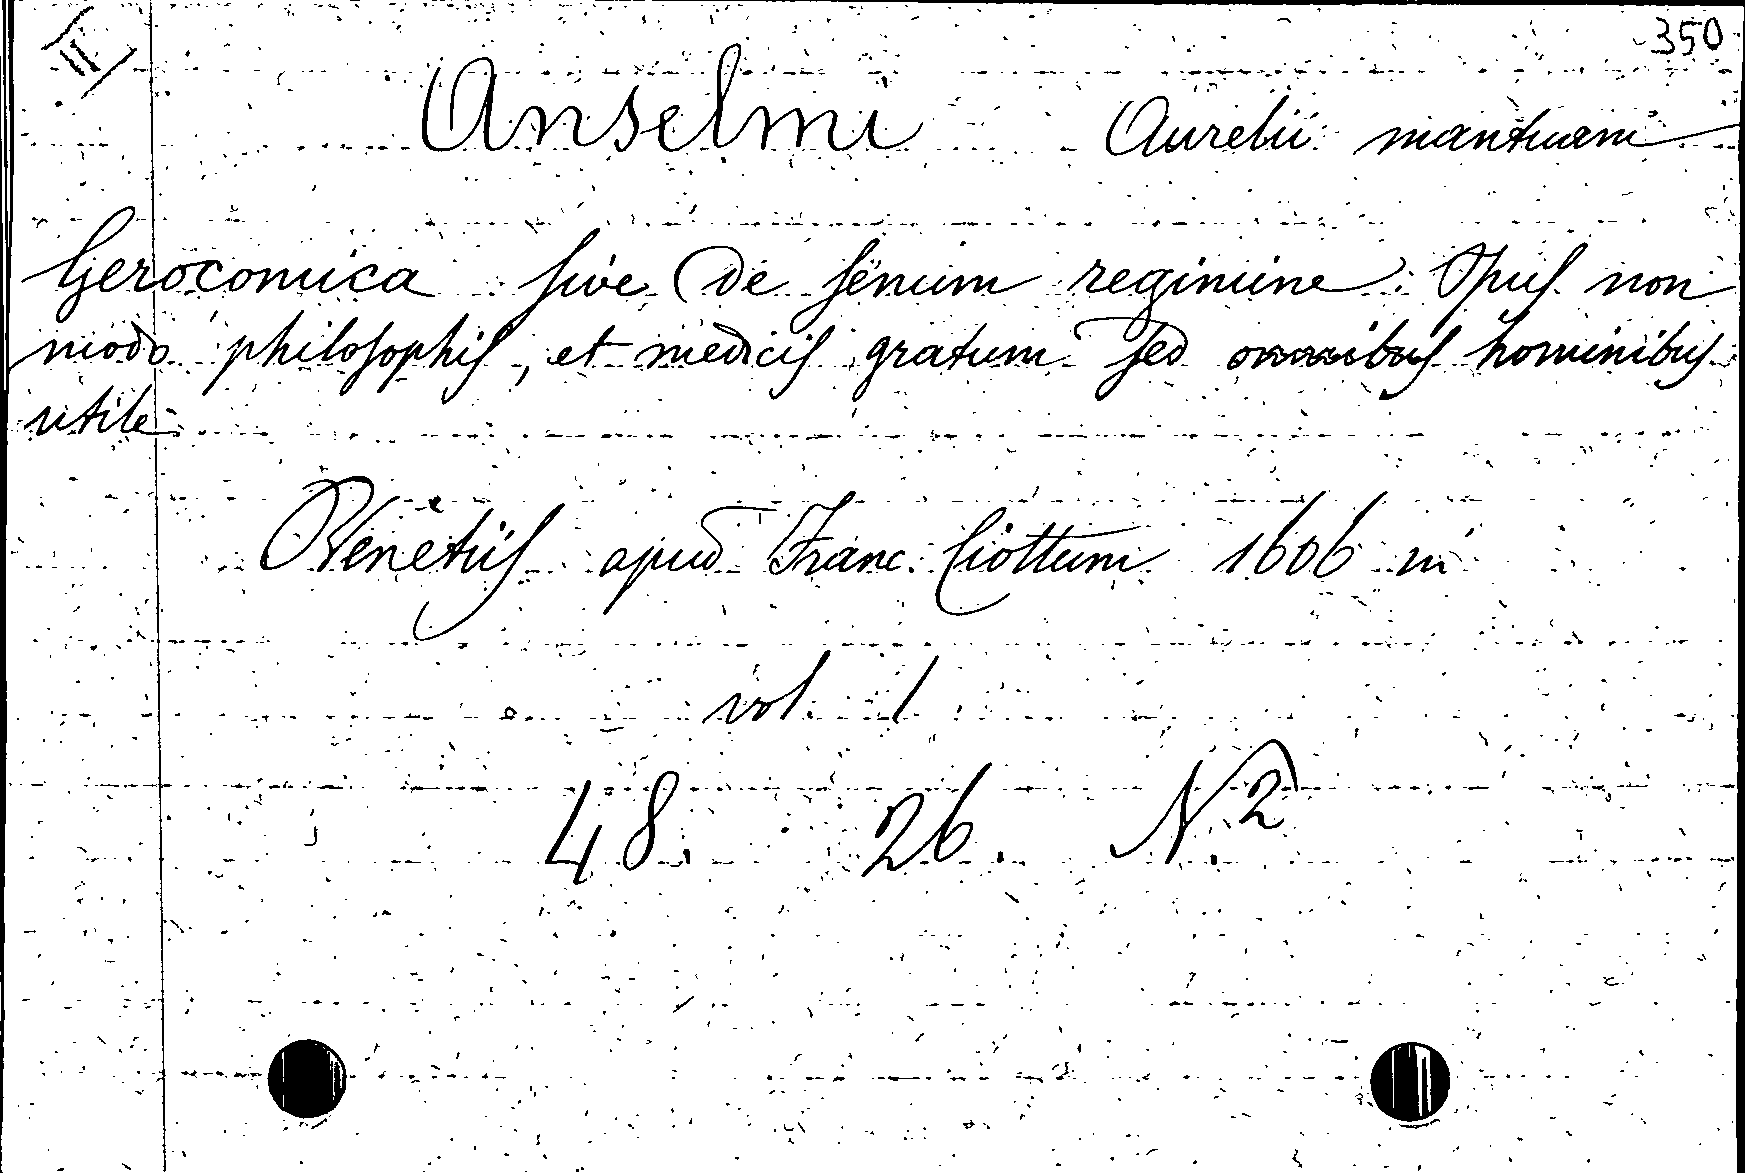 II 350
Anselmi Aurelii mantuani
Geroconica sive De senum regimine: Opus non
modo philosophis, et medicis gratum sed omnibus hominibus
utile
Venetiis apud Franc. Ciottum 1606 in
vol. 1
48. 26. N. 2